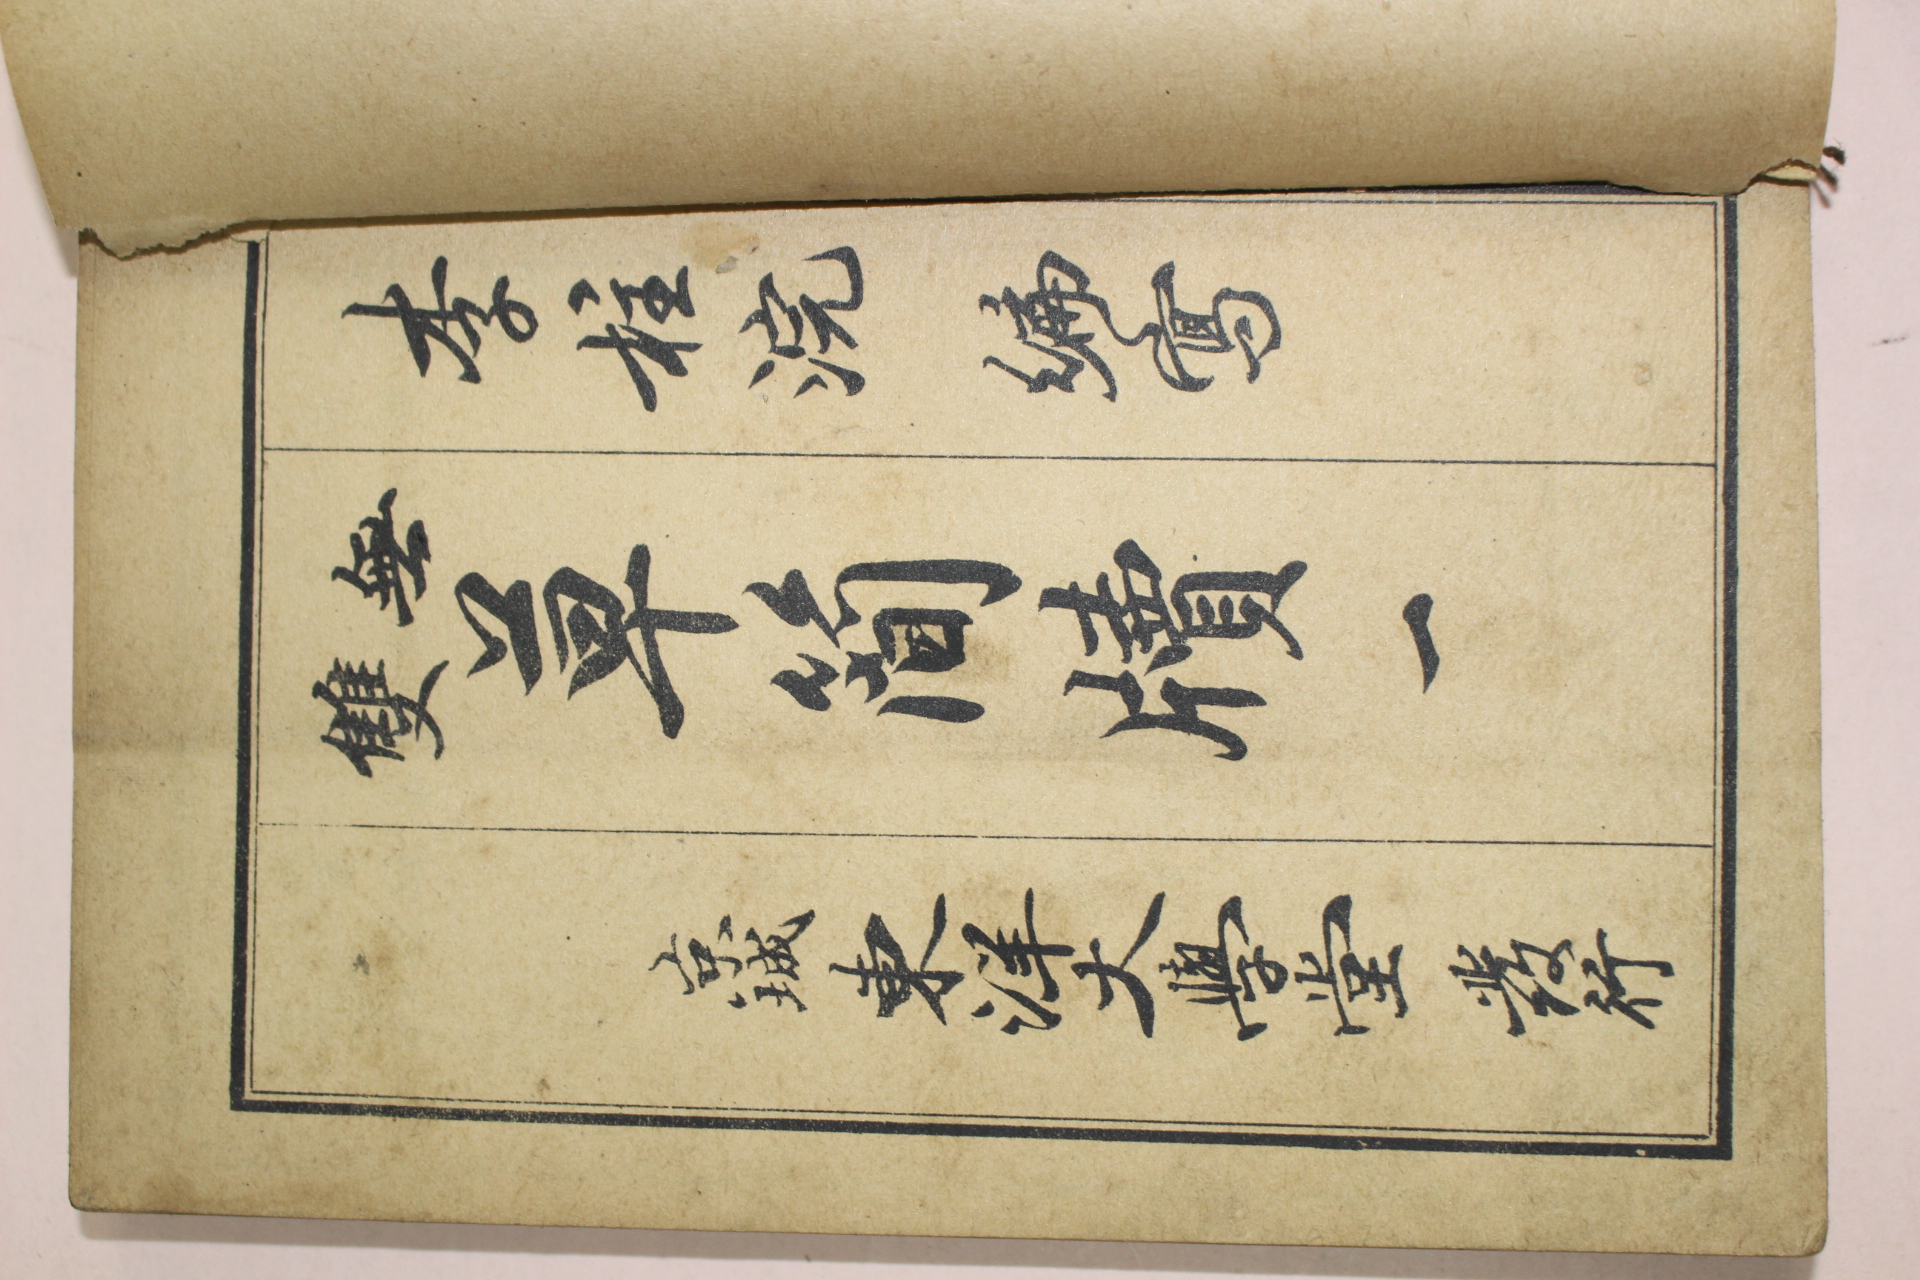 李柱浣 編寫
無雙 草簡牘 一
京城 東洋大學堂 發行